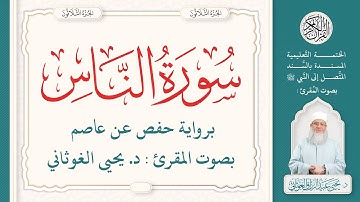 الجزء الثلاثون
الجزء الثلاثون
سُورَةُ النَّاسِ
برواية حفص عن عاصم
بصوت المقرئ : د. يحيى الغوثاني
القرآن الكريم
الختمة التعليمية
المسندة بالسند
المتصل إلى النبي ﷺ
بصوت المقرئ :
د. يحيى عبد الرزاق الغوثاني